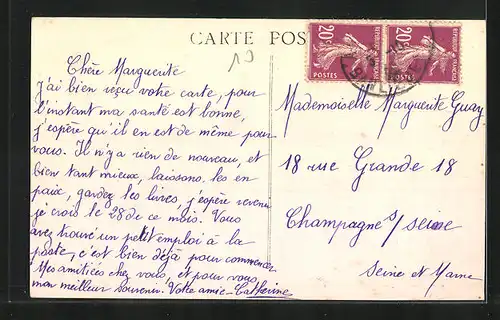 CARTE POS
19
20c 20c
REPUBLIQUE FRANÇAISE
POSTES POSTES
Chère Marguerite
j'ai bien reçu votre carte, pour
l'instant ma santé est bonne,
j'espère qu'il en est de même pour
vous. Il n'y a rien de nouveau, et
bien tant mieux, laissons les en
paix, gardez les livres, j'espère revenir
je crois le 28 de ce mois. Vous
avez trouvé un petit emploi à la
poste, c'est bien déjà pour commencer
Mes amitiées chez vous, et pour vous
mon meilleur souvenir. Votre amie - Catherine
Mademoiselle Marguerite Guay
18 rue Grande 18
Champagne s/ Seine
Seine et Marne